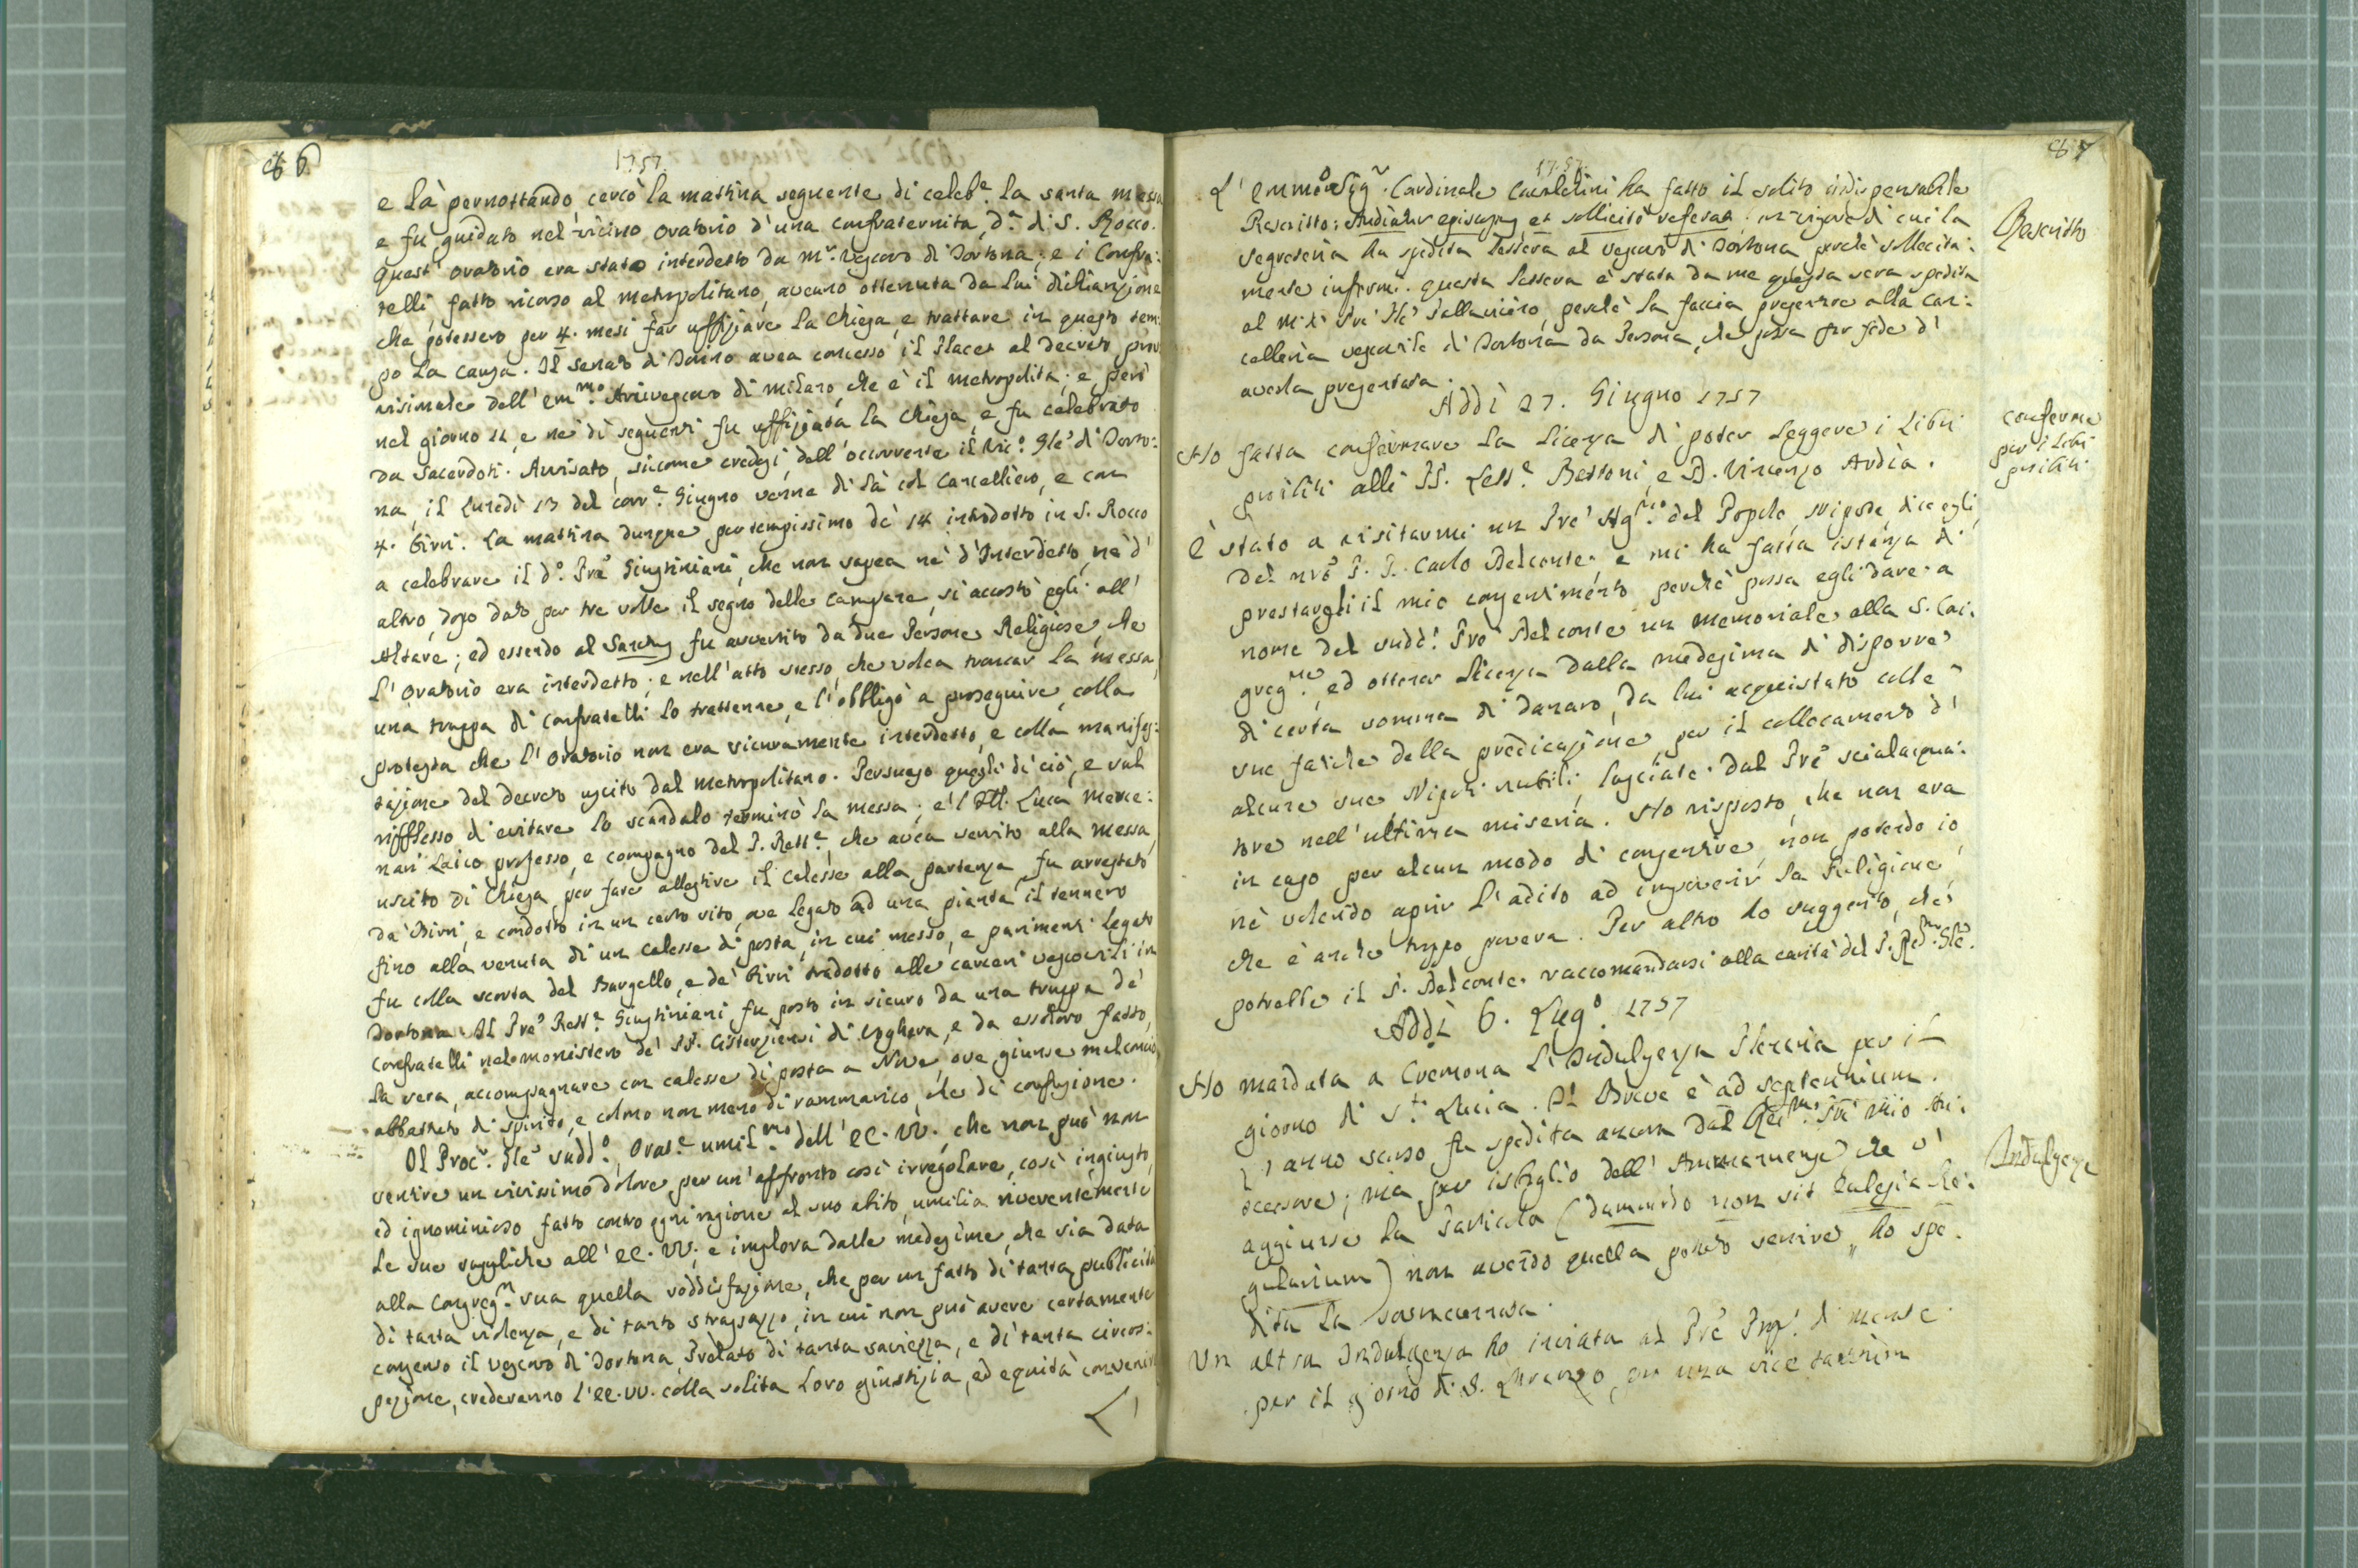 86
1757
e là pernottando, cercò la mattina seguente di celeb.e la santa messa
e fu guidato nel vicino oratorio d'una confraternita, d.a di S. Rocco.
Quest' oratorio era stato interdetto da m.r Vescovo di Dortona; e i Confra:
telli, fatto ricorso al metropolitano, aveano ottenuta da lui dichiarazione
che potessero per 4. mesi far uffiziare la Chiesa, e trattare in questo tem:
po la causa. Il senato di Torino avea concesso il Placet al decreto
dell' Em.mo Arcivescovo di Milano, che è il metropolita; e però
nel giorno 11, e ne' dì seguenti fu uffiziata la Chiesa, e fu celebrato
da Sacerdoti. Avvisato, siccome credesi, dell'occorrente il Vic.o Gle' di Dorto:
na, il Lunedì 13 del corr.e Giugno venne di là col Cancelliero, e con
4. birri. La mattina dunque per tempissimo de' 14 introdotto in S. Rocco
a celebrare il d.o Pre' Giustiniani, che non sapea nè d'Interdetto, nè d'
altro, dopo dato per tre volte il segno delle campane, si accostò egli all'
Altare; ed essendo al Sanctus fu avvertito da due Persone Religiose, che
l'Oratorio era interdetto; e nell'atto stesso, che volea troncar la messa,
una truppa di confratelli lo trattenne, e l'obbligò a proseguire, colla
protesta che l'Oratorio non era sicuramente interdetto, e colla manifes:
tazione del decreto uscito dal metropolitano. Persuaso quegli di ciò, e sul
rifflesso d'evitare lo scandalo terminò la messa; e'l Luca
Laico professo, e compagno del P. Rett.e, che avea servito alla messa,
uscito di Chiesa per fare allestire il calesse alla partenza fu arrestato
da' Birri, e condotto in un certo sito, ove legato ad una pianta il tennero
fino alla venuta di un calesse di posta, in cui messo, e parimenti legato
fu colla scorta del Bargello, e de' birri tradotto alle carceri vescovili in
Dortona. Il Pre' Rett.e Giustiniani fu posto in sicuro da una truppa de'
confratelli nel monistero de' PP. Cisterziensi di Voghera, e da essoloro fatto,
la sera, accompagnare con calesse di posta a Nove, ove giunse malconcio
abbattuto di spirito, e colmo non meno di rammarico, che di confusione.
Il Proc.r Gle' sudd.o, Orat.e umil.mo dell' EE. VV., che non può non
sentire un vivissimo dolore per un'affronto così irregolare, così ingiusto,
ed ignominioso fatto contro ogni ragione al suo abito, umilia riverentemente
le sue suppliche all' EE. VV., e implora dalle medesime, che sia data
alla Congreg.n sua quella soddisfazione, che per un fatto di tanta publicità
di tanta violenza, e di tanto strapazzo, in cui non può avere certamente
consenso il Vescovo di Dortona, Prelato di tanta saviezza, e di tanta circos:
pezione, crederanno l'EE. VV. colla solita loro giustizia, ed equità convenire
L'
87
1757.
L' Cardinale Cavalchini ha fatto il solito indispensabile
Rescritto: Audiatur Episcopus, et sollicitò referat. in vigore di cui la
segreteria ha spedita lettera al Vescovo di Dortona perchè sollecita:
mente informi. questa lettera è stata da me questa sera spedita
al Pre' Pallavicino, perchè la faccia presentare alla can:
celleria vescovile di Dortona da Persona, che possa far fede d'
averla presentata.
Rescritto
Addì 27. Giugno 1757
Ho fatta confermare la licenza di poter leggere i libri
proibiti alli PP. Bettoni, e D. Vincenzo Ardia.
conferma
per i libri
proibiti
È stato a visitarmi un Pre' Ag.no del Popolo, nipote, dic'egli,
del nro P. D. Carlo Delconte, e mi ha fatta istanza di
prestargli il mio consentimento, perchè possa egli dare a
nome del sudd.o Pre' Delconte un memoriale alla S. Con:
greg.ne, ed ottener licenza dalla medesima di disporre
di certa somma di danaro, da lui acquistato colle
sue fatiche della predicazione, per il collocamento d'
alcune sue Nipoti nubili, lasciate dal Pre' scialacqua:
tore nell'ultima miseria. Ho risposto, che non era
in caso per alcun modo di consentire, non potendo io,
nè volendo aprir l'adito ad impoverir la Religione,
che è anche troppo povera. Per altro ho suggerito, che
potrebbe il P. Delconte raccomandarsi alla carità del P. Gle'.
Addì 6. Lug.o 1757
Ho mandata a Cremona l'Indulgenza Plenaria per il
giorno di S.ta Lucia. Il Breve è ad septennium.
L'anno scorso fu spedita ancora dal mio An:
cessore; ma per isbaglio dell' Amanuense, che v'
aggiunse la particola (dummodo non sit Eclesia Re:
gularium) non avendo quella potuto servire, ho spe:
dita la
Indulgenza
Un altra Indulgenza ho inviata al Pre'
per il giorno di S. Lorenzo, pro una vice tantùm